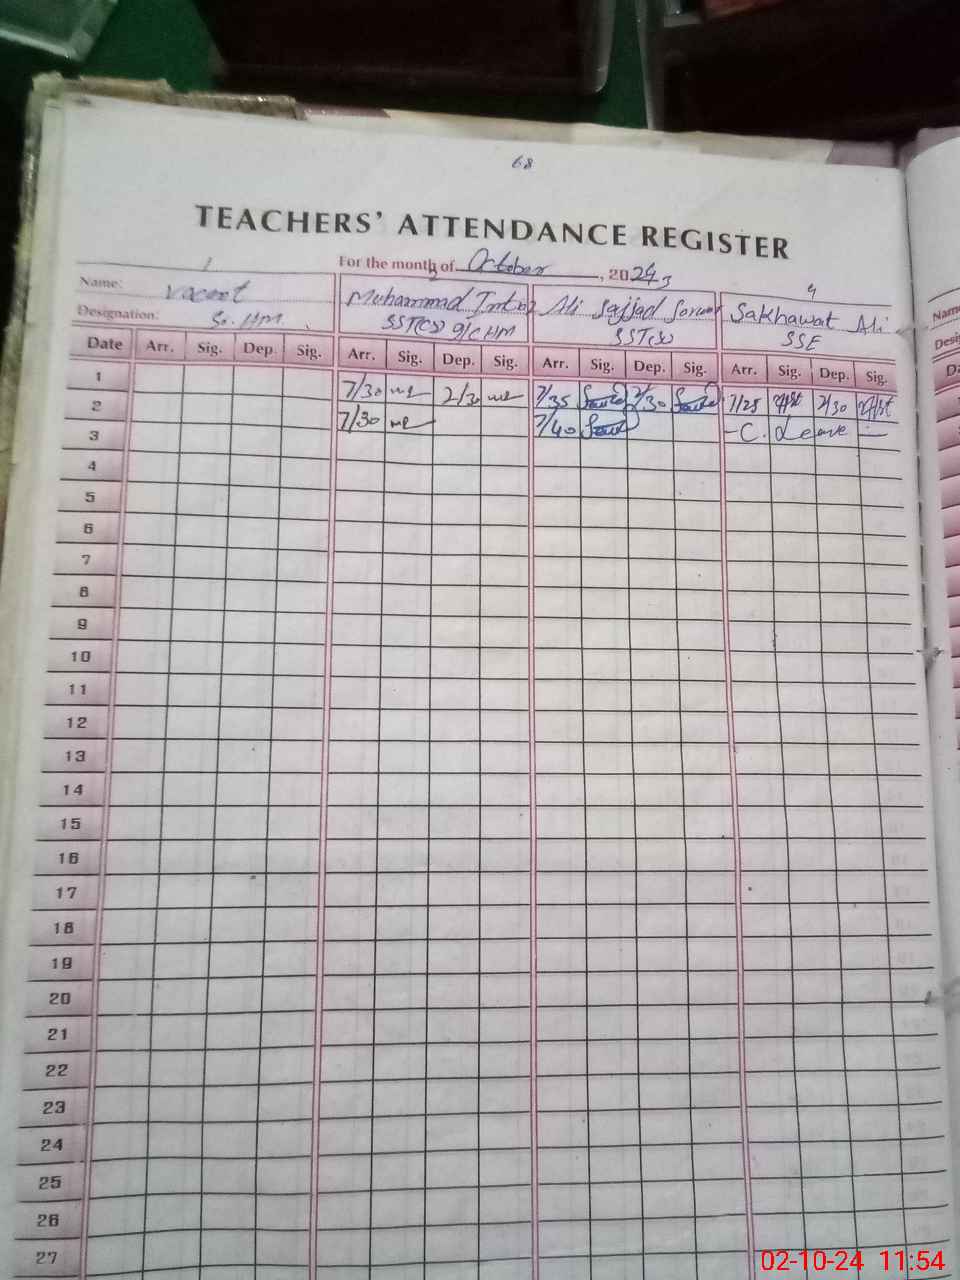 68
TEACHERS' ATTENDANCE REGISTER
For the month of October, 2024
1 2 3 4
Name: Vacant Muhammad Ali Sajjad Sakhawat Ali Name
Designation: Sr. HM. SST(CS) I/C HM SST SSE
Date Arr. Sig. Dep. Sig. Arr. Sig. Dep. Sig. Arr. Sig. Dep. Sig. Arr. Sig. Dep. Sig.
1 7/30 2/30 7/35 2/30 7/25 2/30
2 7/30 7/40 - C. Leave -
3
4
5
6
7
8
9
10
11
12
13
14
15
16
17
18
19
20
21
22
23
24
25
26
27
02-10-24 11:54